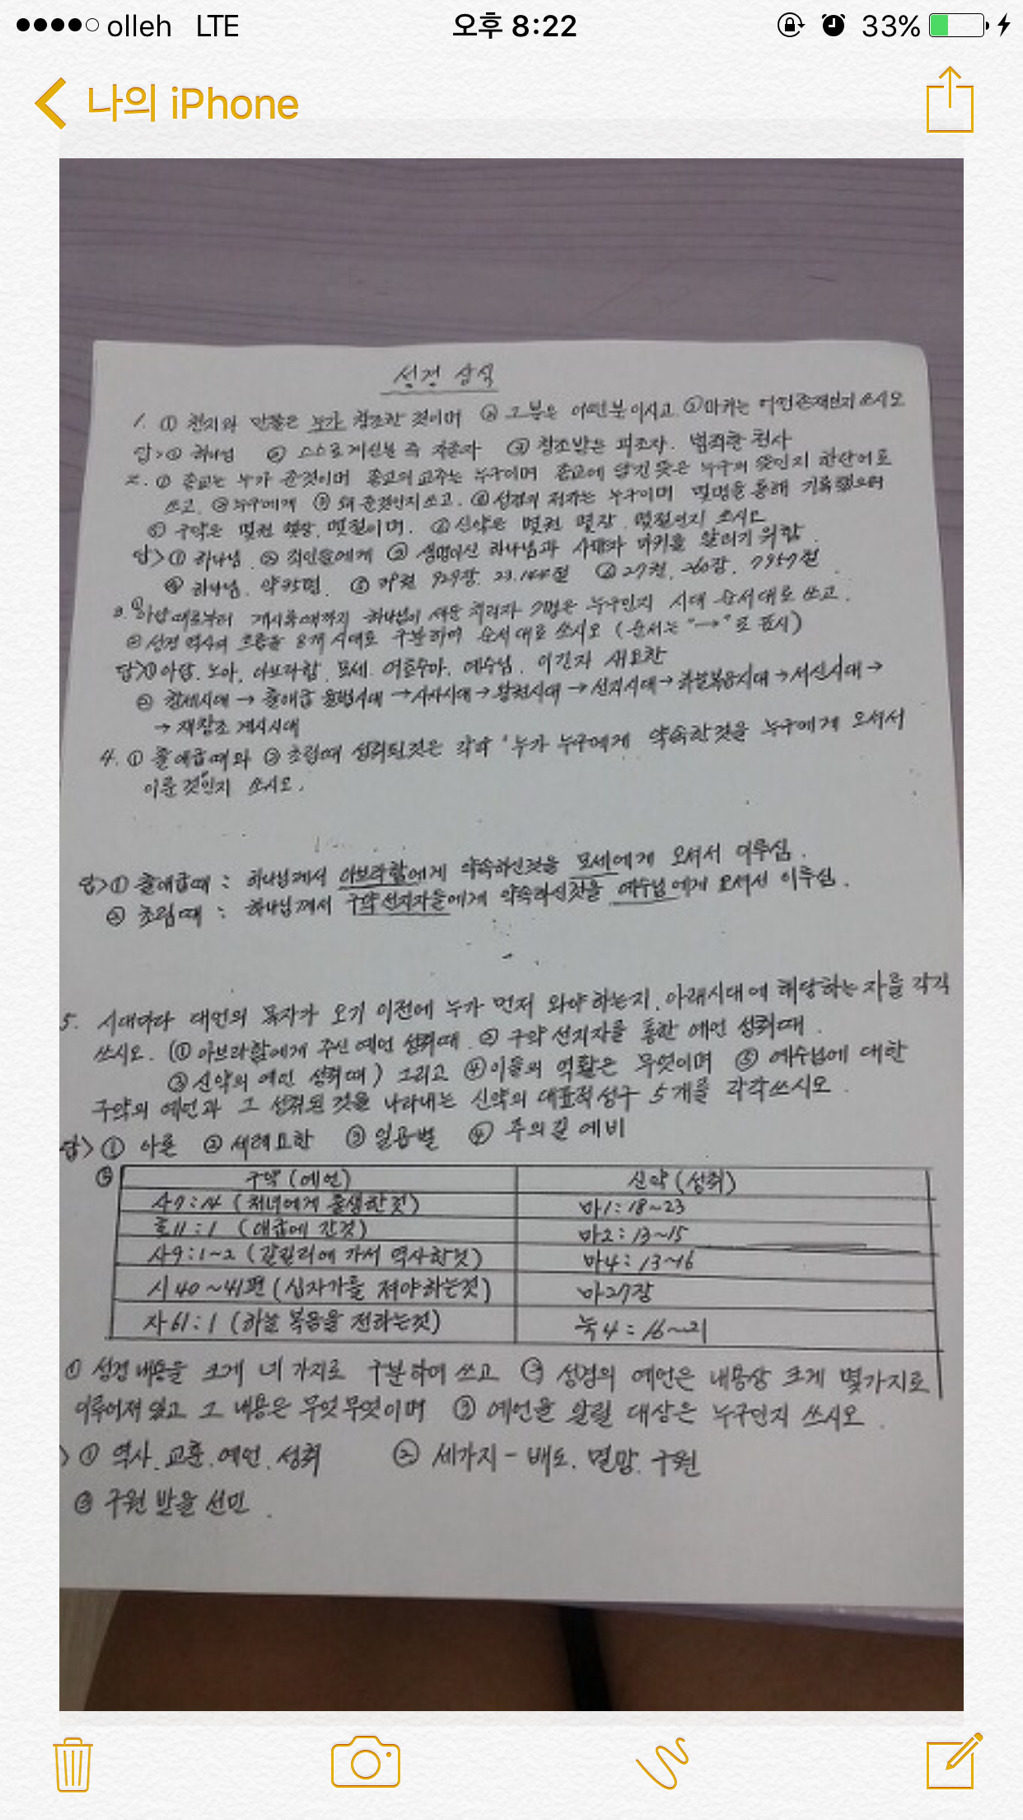 olleh LTE 오후 8:22 33%
나의 iPhone
성경 상식
1. ① 천지와 만물은 누가 창조한 것이며 ② 그 분은 어떤분이시고 ③ 마귀는 어떤존재인지 쓰시오
답> ① 하나님 ② 스스로 계신분 즉 자존자 ③ 창조받은 피조자. 범죄한 천사
2. ① 종교는 누가 준것이며 종교의 교주는 누구이며 종교에 담긴 뜻은 누구의 뜻인지 한단어로
쓰고. ② 누구에게 ③ 왜 준것인지 쓰고. ④ 성경의 저자는 누구이며 몇명을 통해 기록했으며
⑤ 구약은 몇권 몇장. 몇절이며. ⑥ 신약은 몇권 몇장. 몇절인지 쓰시오
답> ① 하나님. ② 죄인들에게 ③ 생명이신 하나님과 사망자 마귀를 알리기 위함.
④ 하나님. 약 명. ⑤ 39권 929장. 23.144절 ⑥ 27권. 260장. 7957절
3. ① 아담때로부터 계시록때까지 하나님이 세운 목자 7명은 누구인지 시대 순서대로 쓰고.
② 성경 역사의 흐름을 8개 시대로 구분하여 순서대로 쓰시오 (순서는 "→"로 표시)
답> ① 아담. 노아. 아브라함. 모세. 여호수아. 예수님. 이긴자 새요한
② 창세시대 → 출애굽 율법시대 → 사사시대 → 왕권시대 → 선지시대 → 하늘복음시대 → 서신시대 →
→ 재창조 계시시대
4. ① 출애굽때와 ② 초림때 성취된것은 각각 "누가 누구에게 약속한것을 누구에게 오셔서
이룬 것"인지 쓰시오.
답> ① 출애굽때 : 하나님께서 아브라함에게 약속하신것을 모세에게 오셔서 이루심.
② 초림때 : 하나님께서 구약선지자들에게 약속하신것을 예수님에게 오셔서 이루심.
5. 시대마다 대언의 목자가 오기 이전에 누가 먼저 와야하는지. 아래시대에 해당하는 자를 각각
쓰시오. (① 아브라함에게 주신 예언 성취때. ② 구약 선지자를 통한 예언 성취때.
③ 신약의 예언 성취때) 그리고 ④ 이들의 역할은 무엇이며 ⑤ 예수님에 대한
구약의 예언과 그 성취된 것을 나타내는 신약의 대표적성구 5개를 각각쓰시오.
답> ① 아론 ② 세례요한 ③ 일곱별 ④ 주의길 예비
⑤ 구약(예언) 신약(성취)
사7:14 (처녀에게 출생한것) 마1:18~23
호11:1 (애굽에 간것) 마2:13~15
사9:1~2 (갈릴리에 가서 역사한것) 마4:13~16
시40~41편 (십자가를 져야하는것) 마27장
사61:1 (하늘 복음을 전하는것) 눅4:16~21
① 성경 내용을 크게 네 가지로 구분하여 쓰고 ② 성경의 예언은 내용상 크게 몇가지로
이루어져 있고 그 내용은 무엇무엇이며 ③ 예언을 알릴 대상은 누구인지 쓰시오.
> ① 역사.교훈.예언.성취 ② 세가지 - 배도. 멸망. 구원
③ 구원 받을 선민.